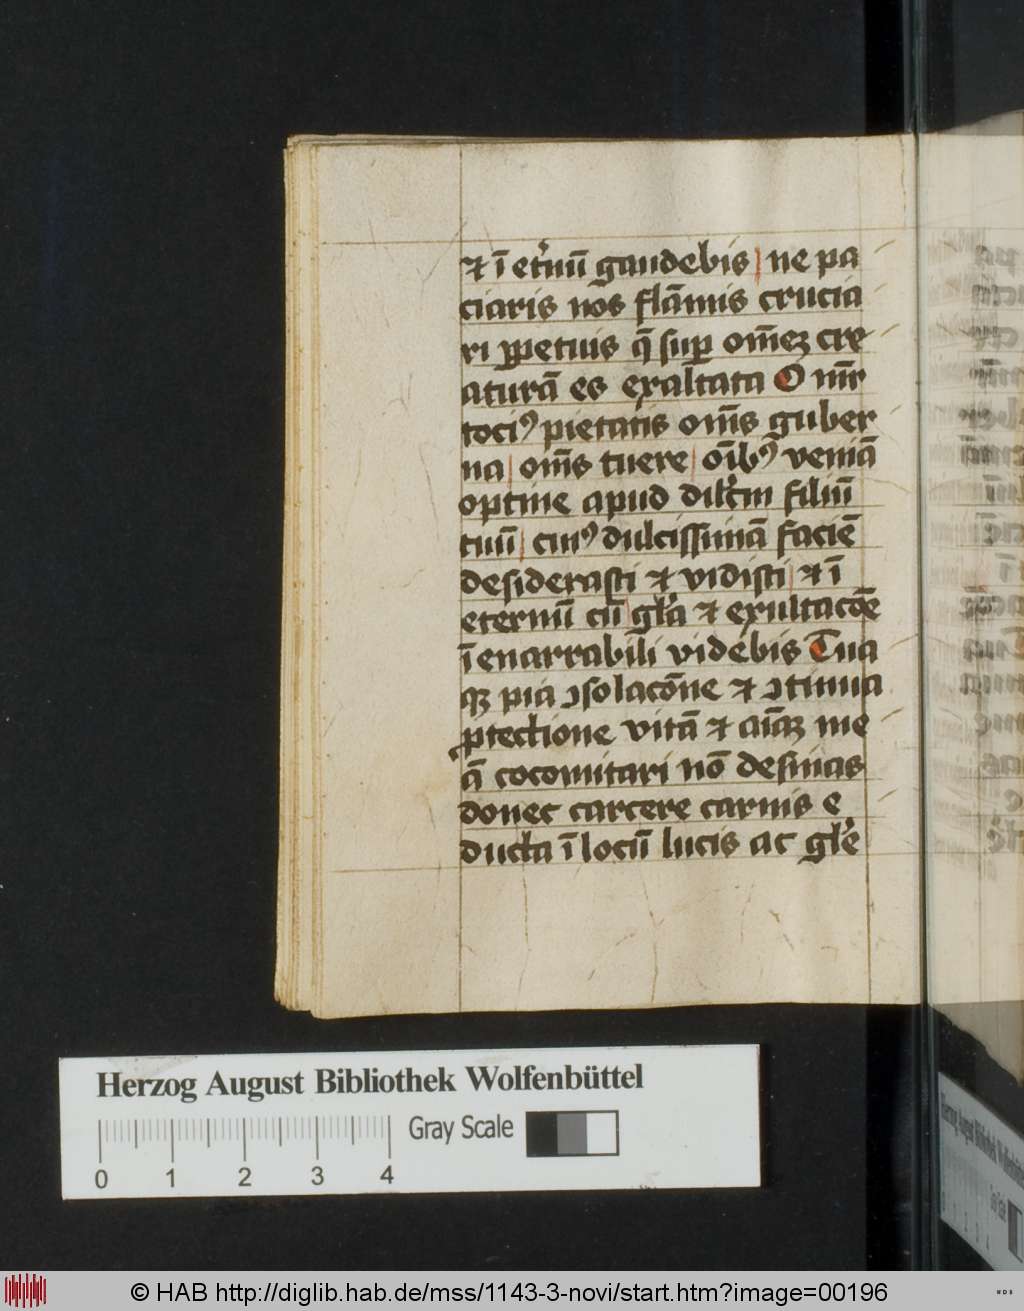 ⁊ ī et̾nū gaudebis ne pa
ciaris nos flāmis crucia
ri ꝑpetuis q̄ suꝑ om̄eꝫ cre
aturā es exaltata O mr̄
tociꝰ pietatis om̄s guber
na om̄s tuere oībꝰ veniā
optine apud dilc̄m filiū
tuū cuiꝰ dulcissimā faciē
desiderasti ⁊ vidisti ⁊ ī
eternū cū gl̄a ⁊ exultacōe
īenarrabili videbis Tua
qꝫ pia ↄsolacōne ⁊ ↄtinua
ꝓtectione vitā ⁊ aīaꝫ me
ā cocomitari nō desinas
donec carcere carnis e
ducta ī locū lucis ac gl̄e
Herzog August Bibliothek Wolfenbüttel
Gray Scale
0 1 2 3 4
© HAB http://diglib.hab.de/mss/1143-3-novi/start.htm?image=00196